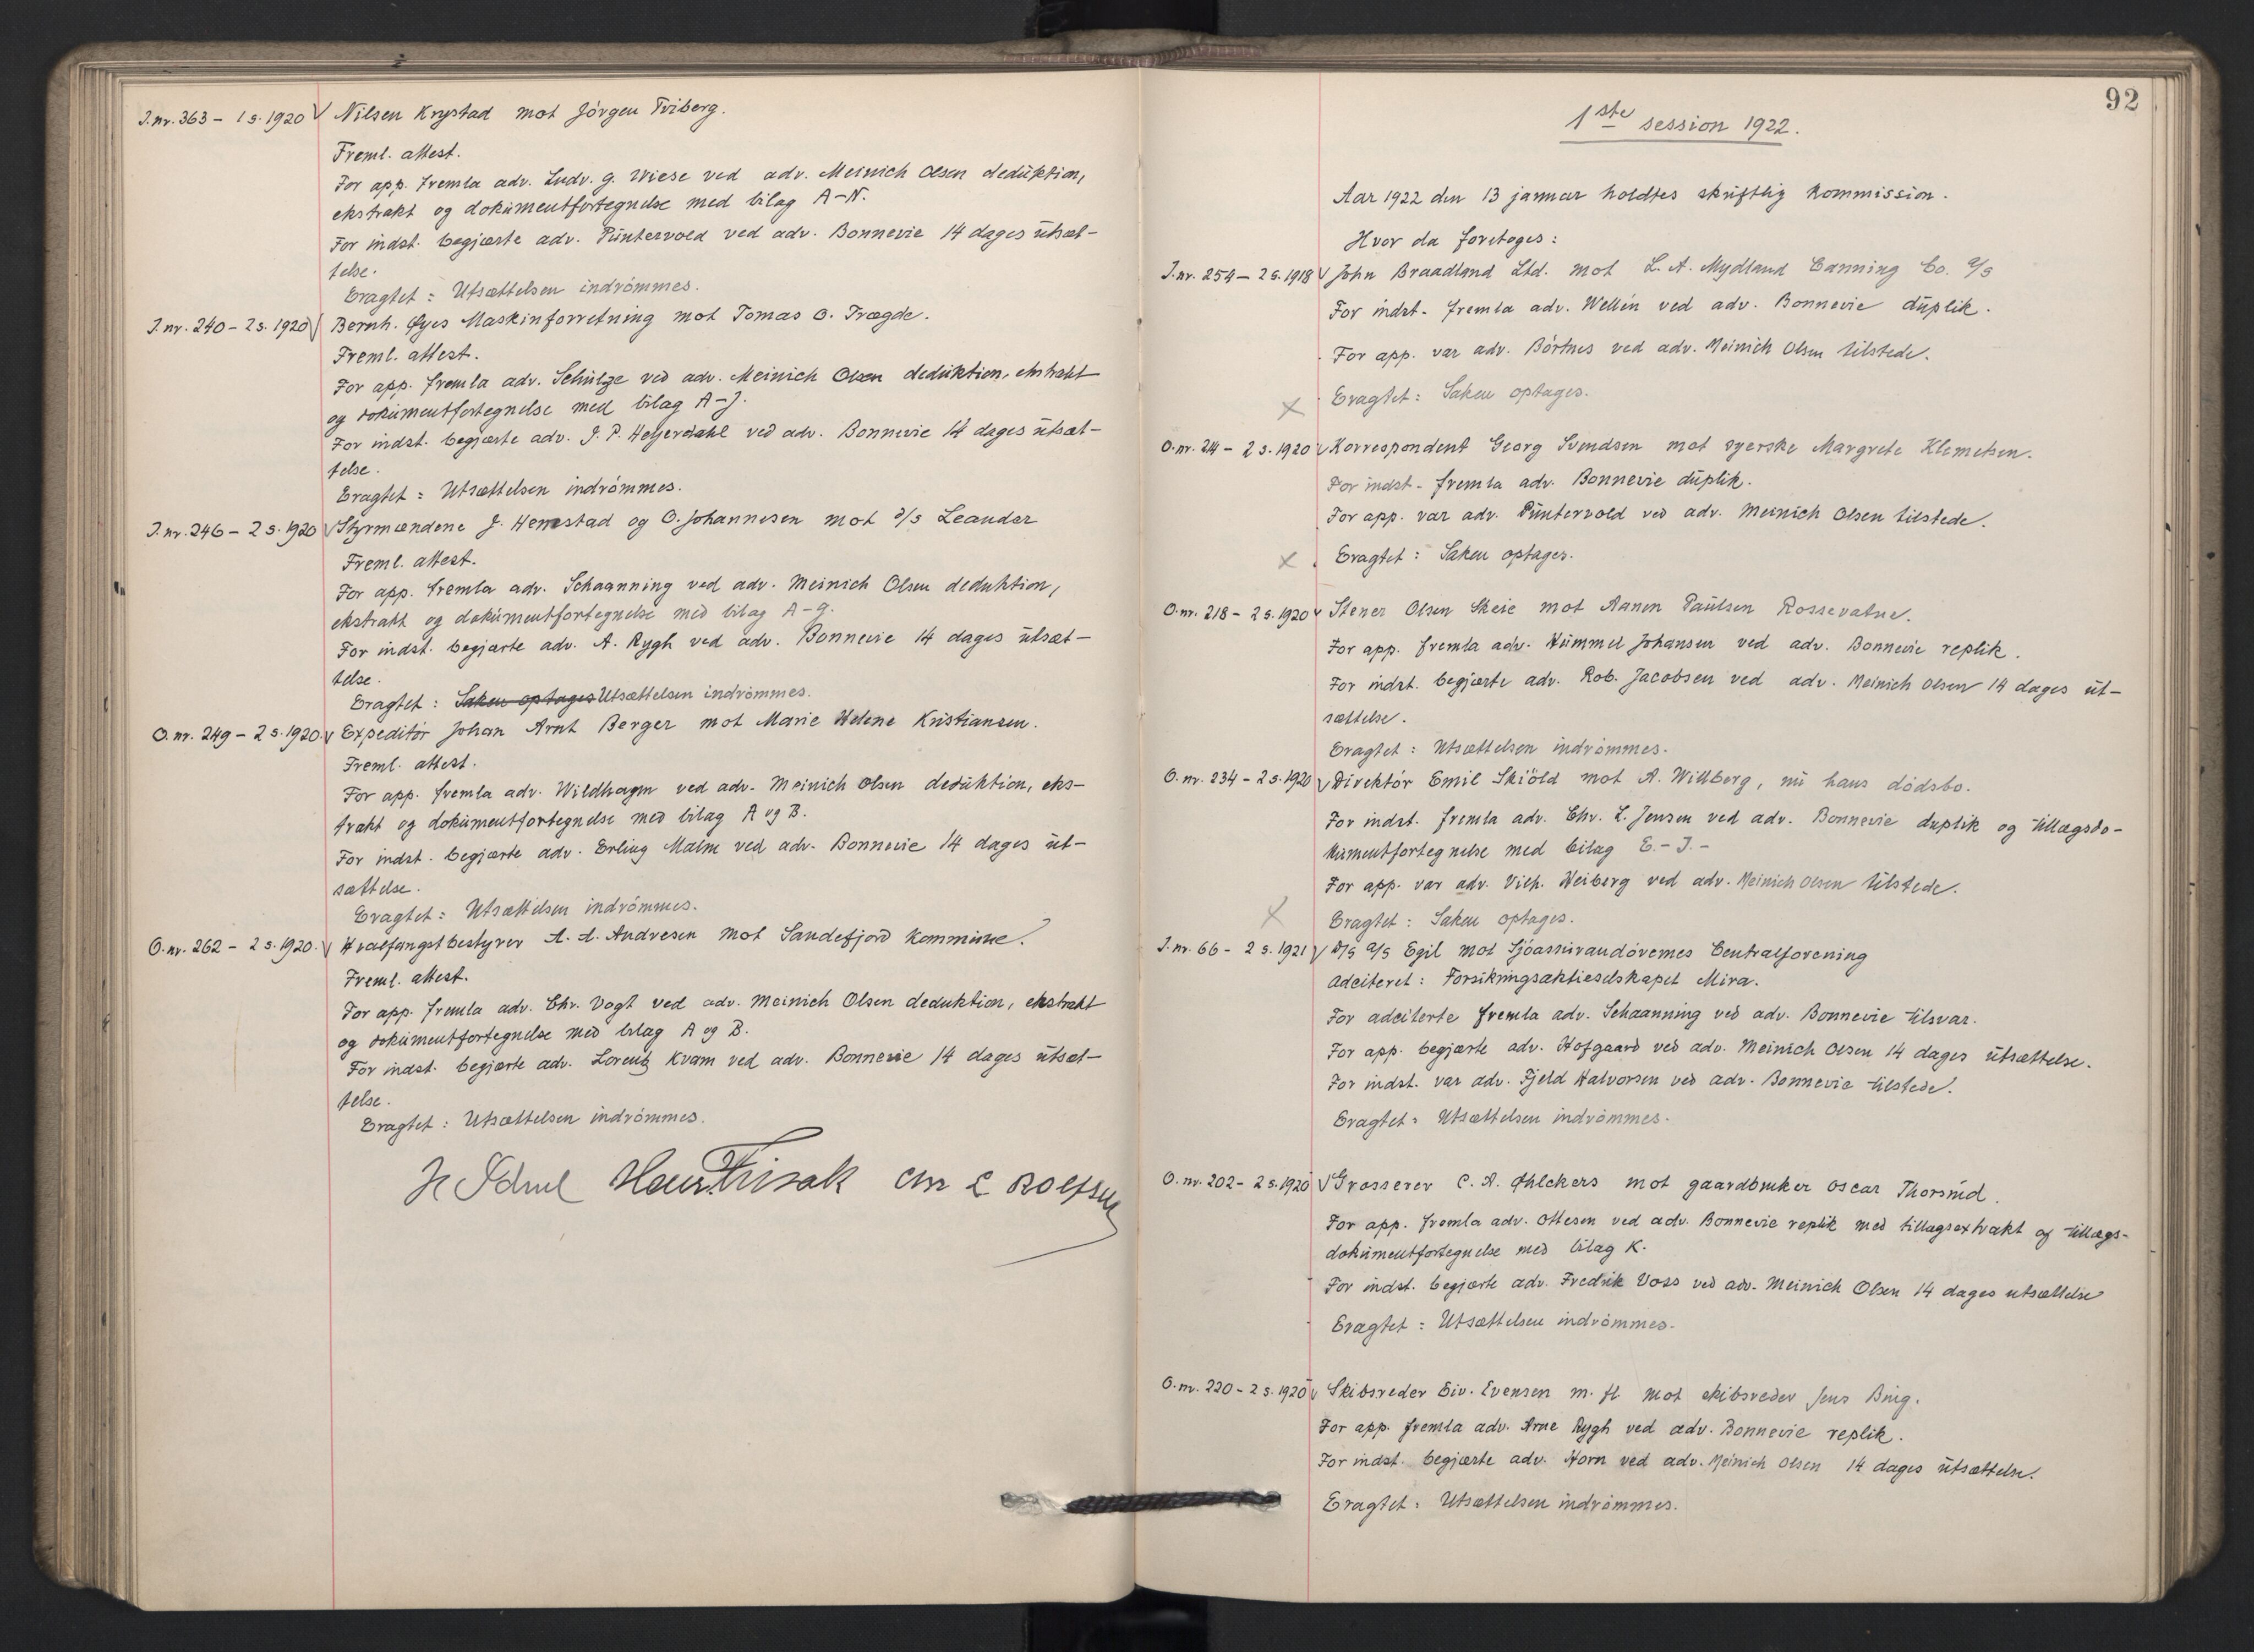 J.nr. 363 - 1 s. 1920 √ Nilsen Krystad mot Jörgen Tviberg.
Freml. attest.
For app. fremla adv. Ludv. G. Wiese ved adv. Meinich Olsen deduktion,
ekstrakt og dokumentfortegnelse med bilag A-N.
For indst. begjærte adv. Püntervold ved adv. Bonnevie 14 dages utsæt-
telse.
Eragtet: Utsættelsen indrömmes.
J.nr. 240 - 2 s. 1920 √ Bernh. Øyes Maskinforretning mot Tomas O. Trægde.
Freml. attest.
For app. fremla adv. Schulze ved adv. Meinich Olsen deduktion, ekstrakt
og dokumentfortegnelse med bilag A-J.
For indst. begjærte adv. J. P. Heyerdahl ved adv. Bonnevie 14 dages utsæt-
telse.
Eragtet: Utsættelsen indrömmes.
J.nr. 246 - 2 s. 1920 √ Styrmændene J. Hemstad og O. Johannesen mot D/S Leander
Freml. attest.
For app. fremla adv. Schaanning ved adv. Meinich Olsen deduktion,
ekstrakt og dokumentfortegnelse med bilag A-G.
For indst. begjærte adv. A. Rygh ved adv. Bonnevie 14 dages utsæt-
telse.
Eragtet: Saken optages Utsættelsen indrömmes.
O.nr. 249 - 2 s. 1920. √ Expeditör Johan Arnt Berger mot Marie Helene Kristiansen.
Freml. attest.
For app. fremla adv. Wildhagen ved adv. Meinich Olsen deduktion, eks-
trakt og dokumentfortegnelse med bilag A og B.
For indst. begjærte adv. Erling Malm ved adv. Bonnevie 14 dages ut-
sættelse.
Eragtet: Utsættelsen indrömmes.
O.nr. 262 - 2 s. 1920. √ Hvalfangstbestyrer A. A. Andresen mot Sandefjord kommune.
Freml. attest.
For app. fremla adv. Chr. Vogt ved adv. Meinich Olsen deduktion, ekstrakt
og dokumentfortegnelse med bilag A og B.
For indst. begjærte adv. Lorentz Kvam ved adv. Bonnevie 14 dages utsæt-
telse.
Eragtet: Utsættelsen indrömmes.
92
1ste session 1922.
Aar 1922 den 13 januar holdtes skriftlig kommission.
Hvor da foretoges:
J.nr. 254 - 2 s. 1918 √ John Braadland Ltd. mot L. A. Mydland Canning Co. A/S
For indst. fremla adv. Wellén ved adv. Bonnevie duplik.
For app. var adv. Börtnes ved adv. Meinich Olsen tilstede.
x Eragtet: Saken optages.
O.nr. 214 - 2 s. 1920 √ Korrespondent Georg Svendsen mot syerske Margrete Klemetsen.
For indst. fremla adv. Bonnevie duplik.
For app. var adv. Püntervold ved adv. Meinich Olsen tilstede.
x Eragtet: Saken optages.
O.nr. 218 - 2 s. 1920 √ Stener Olsen Skeie mot Aanen Paulsen Rossevatne.
For app. fremla adv. Hummel Johansen ved adv. Bonnevie replik.
For indst. begjærte adv. Rob. Jacobsen ved adv. Meinich Olsen 14 dages ut-
sættelse.
Eragtet: Utsættelsen indrömmes.
O.nr. 234 - 2 s. 1920 √ Direktör Emil Skiöld mot A. Willberg, nu hans dödsbo.
For indst. fremla adv. Chr. L. Jensen ved adv. Bonnevie duplik og tillægsdo-
kumentfortegnelse med bilag E.-J.-
For app. var adv. Vilh. Heiberg ved adv. Meinich Olsen tilstede.
x Eragtet: Saken optages.
J.nr. 66 - 2 s. 1921 √ D/S A/S Egil mot Sjöassurandörernes Centralforening
adciteret: Forsikringsaktieselskapet Mira.
For adciterte fremla adv. Schaanning ved adv. Bonnevie tilsvar.
For app. begjærte adv. Hofgaard ved adv. Meinich Olsen 14 dages utsættelse.
For indst. var adv. Fjeld Halvorsen ved adv. Bonnevie tilstede.
Eragtet: Utsættelsen indrömmes.
O.nr. 202 - 2 s. 1920 √ Grosserer C. A. Øhlckers mot gaardbruker Oscar Thorsrud.
For app. fremla adv. Ottesen ved adv. Bonnevie replik med tillægsextrakt og tillægs-
dokumentfortegnelse med bilag K.
For indst. begjærte adv. Fredrik Voss ved adv. Meinich Olsen 14 dages utsættelse
Eragtet: Utsættelsen indrömmes.
O.nr. 220 - 2 s. 1920 √ Skibsreder Eiv. Evensen m. fl. mot skibsreder Jens Brüg.
For app. fremla adv. Arne Rygh ved adv. Bonnevie replik.
For indst. begjærte adv. Horn ved adv. Meinich Olsen 14 dages utsættelse.
Eragtet: Utsættelsen indrömmes.